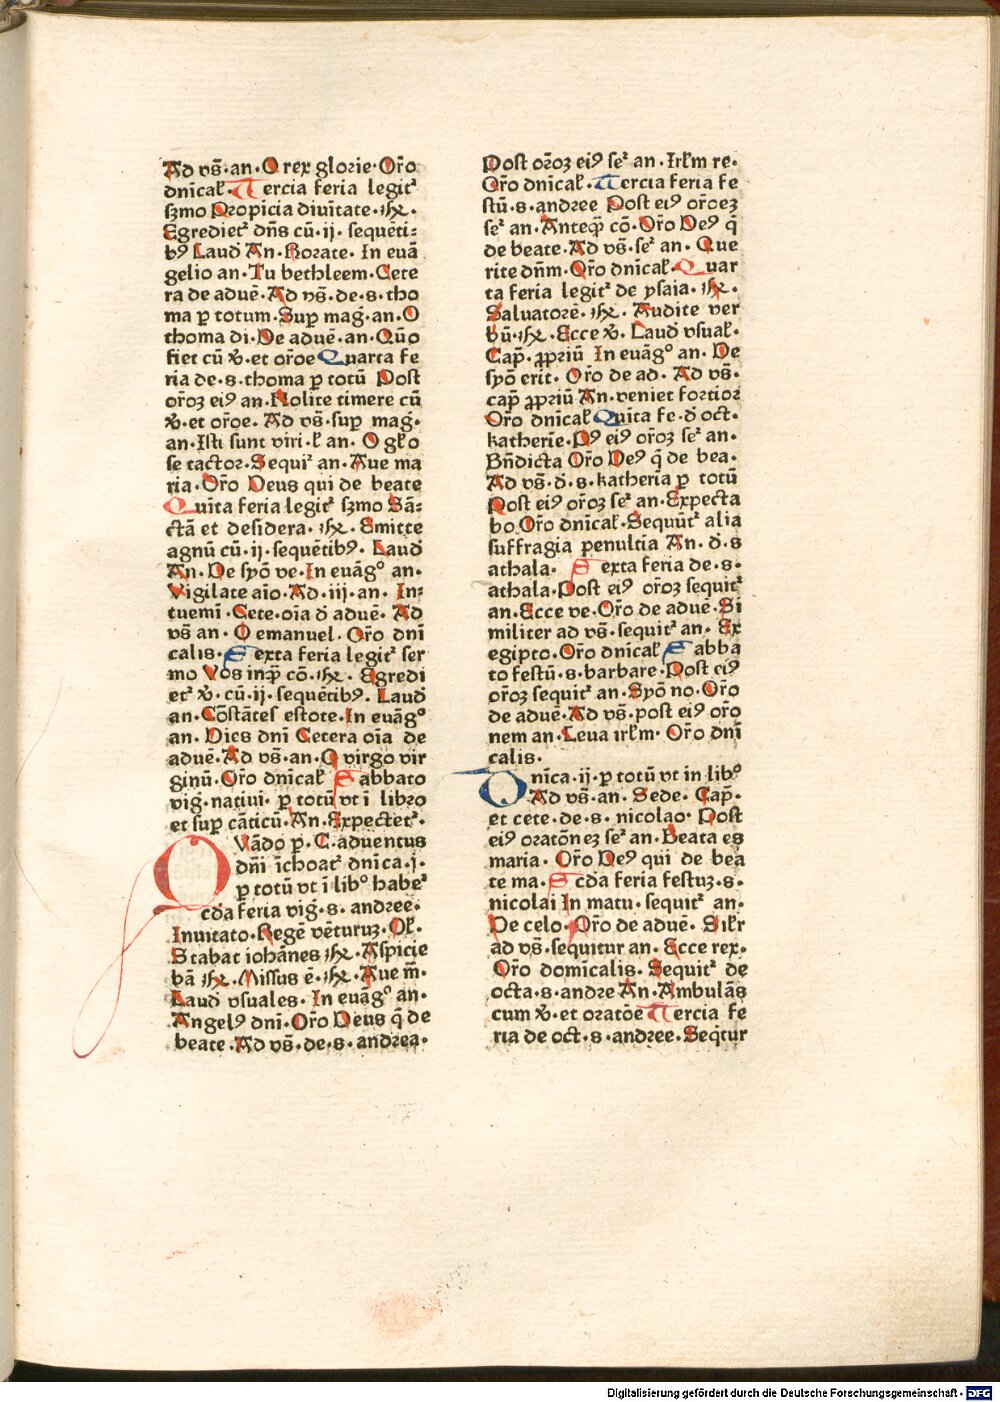 Ad vs̄·an·O rex glorie·Or̄o
dnicaƚ·Tercia feria legitᷣ
ẜmo Propicia diuītate·℟·
Egredietᷣ dn̄s cū·ij·sequēti⸗
bꝰ Laud An·Rorate·In euā
gelio an·Tu bethleem·Cete
ra de aduē·Ad vs̄·de·s·tho
ma ꝑ totum·Suꝑ mag·an·O
thoma di·De aduē·an·Quō
fiet cū ꝟ·et or̄oe Quarta fe
ria de·s·thoma ꝑ totū Post
or̄oꝫ eiꝰ an·Nolite timere cū
ꝟ·et or̄oe·Ad vs̄·suꝑ mag·
an·Isti sunt viri·ƚ an·O gƚo
se tactor·Sequiᷣ an·Aue ma
ria·Or̄o Deus qui de beate
Quīta feria legitᷣ ẜmo Sā⸗
ctā et desidera·℟·Emitte
agnū cū·ij·sequētibꝰ·Laud
An·De syō ve·In euāgᵒ an·
Vigilate aīo·Ad·iij·an·In⸗
tuemī·Cete·oīa đ aduē·Ad
vs̄ an·O emanuel·Or̄o dnī
calis·Sexta feria legitᷣ ser
mo Vos inꝙ cō·℟·Egredi
etᷣ ꝟ·cū·ij·sequētibꝰ·Laud
an·Cōstātes estote·In euāgᵒ
an·Dies dnī Cetera oīa de
aduē·Ad vs̄·an·O virgo vir
ginū·Or̄o dnīcaƚ Sabbato
vig·natiui·ꝑ totū vt ī libro
et suꝑ cāticū·An·Expectetᷣ·
Qvādo ꝑ·C·aduentus
dn̄i īchoatᷣ dnīca·j·
ꝑ totū vt ī libᵒ habeᷣ
Scda feria vig·s·andree·
Inuitato·Regē vēturuꝫ·Oƚ·
Stabat iohānes ℟·Aspicie
bā ℟·Missus ē·℟·Aue m̄·
Laud vsuales·In euāgᵒ an·
Angelꝰ dnī·Or̄o Deus q̄ de
beate·Ad vs̄·de·s·andrea·
Post or̄oꝫ eiꝰ seᷣ an·Irƚm re·
Or̄o dnīcaƚ·Tercia feria fe
stū·s·andree Post eiꝰ or̄oeꝫ
seᷣ an·Anteꝙ̄ cō·Or̄o Deꝰ q̄
de beate·Ad vs̄·seᷣ an·Que
rite dn̄m·Or̄o dnīcaƚ·Quar
ta feria legitᷣ de ysaia·℟·
Saluatorē·℟·Audite ver
bū·℟·Ecce ꝟ·Laud vsuaƚ·
Cap̄·ꝓpriū In euāgᵒ an·De
syō erit·Or̄o de ad·Ad vs̄·
cap̄ ꝓpriū An·veniet fortior
Or̄o dnīcaƚ Quīta fe·đ oct·
katherīe·Pꝰ eiꝰ or̄oꝫ seᷣ an·
Bn̄dicta Or̄o Deꝰ q̄ de bea·
Ad vs̄·đ·s·katheria ꝑ totū
Post eiꝰ or̄oꝫ seᷣ an·Expecta
bo·Or̄o dnīcaƚ·Sequūtᷣ alia
suffragia penultia An·đ·s
athala·Sexta feria de·s·
athala·Post eiꝰ or̄oꝫ sequitᷣ
an·Ecce ve·Or̄o de aduē·Si
militer ad vs̄·sequitᷣ an·Ex
egipto·Or̄o dnīcaƚ Sabba
to festū·s·barbare·Post eiꝰ
or̄oꝫ sequitᷣ an·Syō no·Or̄o
de aduē·Ad vs̄·post eiꝰ or̄o
nem an·Leua irƚm·Or̄o dnī
calis·
Dnīca·ij·ꝑ totū vt in libᵒ
Ad vs̄·an·Sede·Cap̄·
et cete·de·s·nicolao·Post
eiꝰ oratōneꝫ seᷣ an·Beata es
maria·Or̄o Deꝰ qui de bea
te ma·Scda feria festuꝫ·s·
nicolai In matu·sequitᷣ an·
De celo·Or̄o de aduē·Siƚr
ad vs̄·sequitur an·Ecce rex·
Or̄o domicalis·Sequitᷣ de
octa·s·andre An·Ambulās
cum ꝟ·et oratōe Tercia fe
ria de oct·s·andree·Seq̄tur
Digitalisierung gefördert durch die Deutsche Forschungsgemeinschaft - DFG